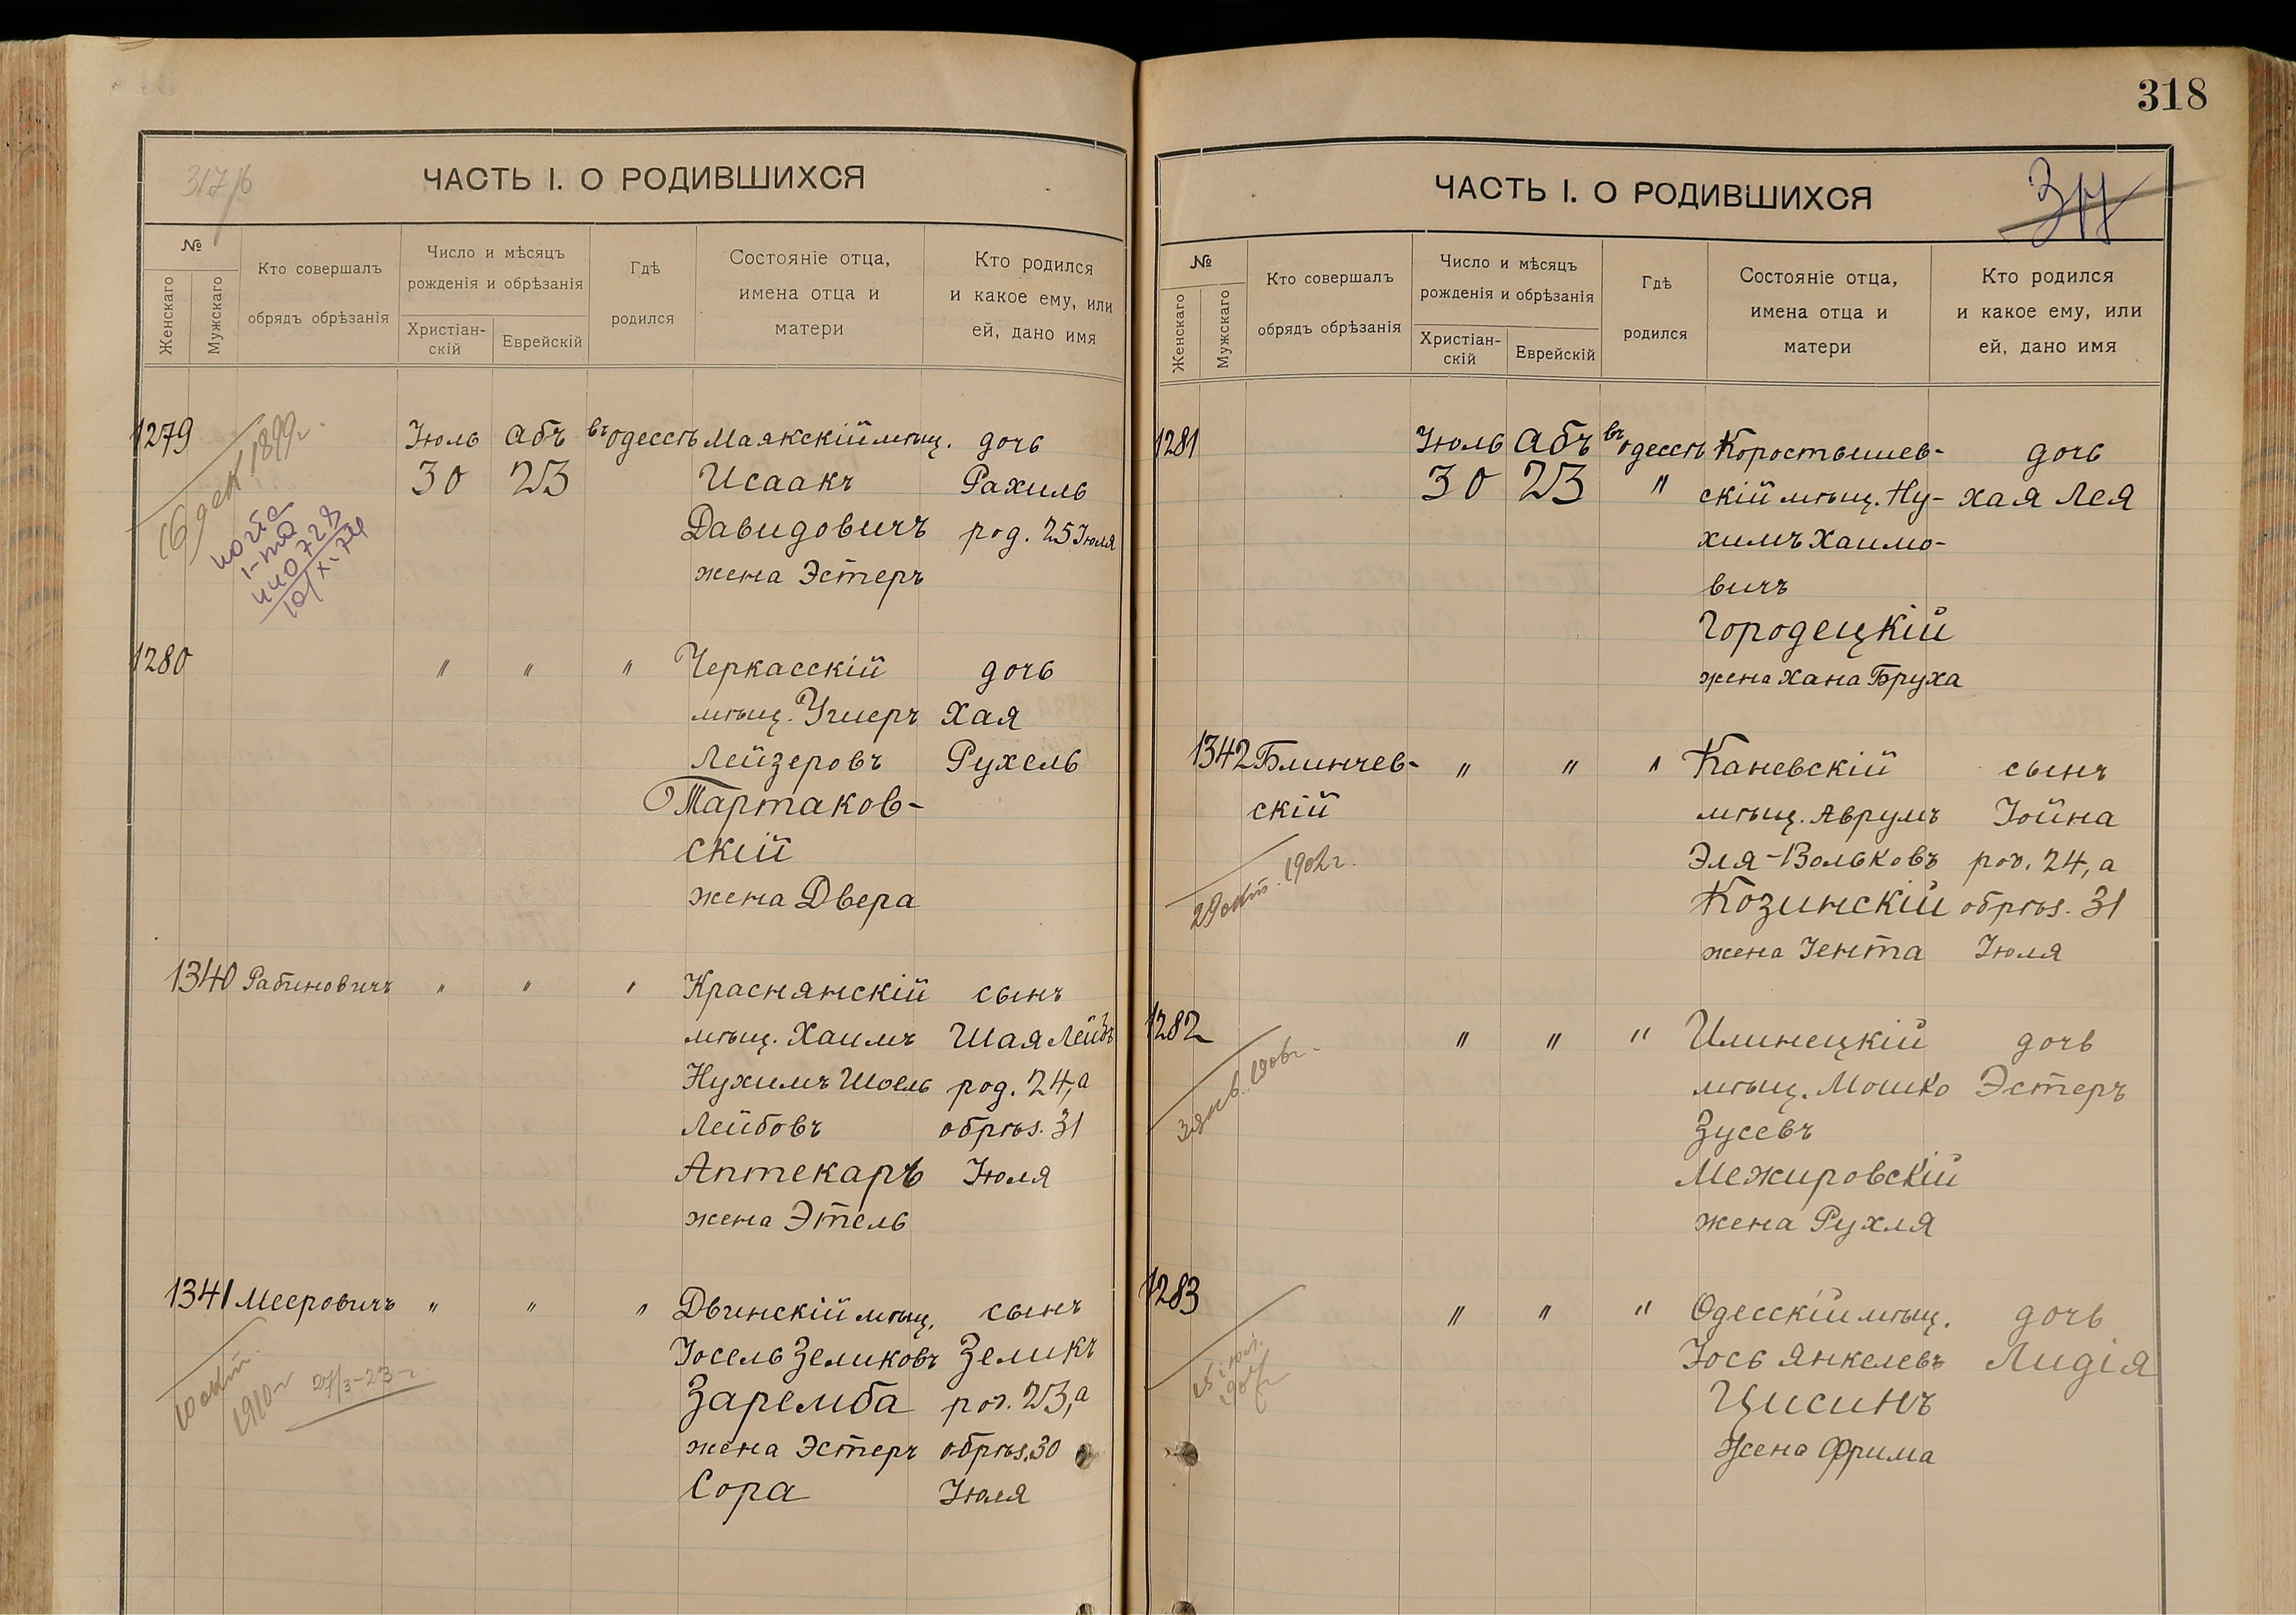 318
317/б
ЧАСТЬ I. О РОДИВШИХСЯ
№
Женскаго
Мужскаго
Кто совершалъ
обрядъ обрѣзанія
Число и мѣсяцъ
рожденія и обрѣзанія
Христіан-
скій
Еврейскій
Гдѣ
родился
Состояніе отца,
имена отца и
матери
Кто родился
и какое ему, или
ей, дано имя
1279 Іюль Абъ въ Одессѣ Маякскій мѣщ. дочь
30 23 Исаакъ Рахиль
Давидовичъ род. 25 Іюля
жена Эстеръ
16 дек 1899 г.
1280 " " " Черкасскій дочь
мѣщ. Ушеръ Хая
Лейзеровъ Рухель
Тартаков-
скій
жена Двера
1340 Рабиновичъ " " " Краснянскій сынъ
мѣщ. Хаимъ Шая Лейбъ
Нухимъ Шоель род. 24, а
Лейбовъ обрѣз. 31
Аптекарь Іюля
жена Этель
1341 Мееровичъ " " " Двинскій мѣщ. сынъ
Іосель Зеликовъ Зеликъ
Заремба род. 23, а
жена Эстеръ обрѣз. 30
Сора Іюля
10 окт.
1910 г
27/3-23 г
ЧАСТЬ I. О РОДИВШИХСЯ
317
№
Женскаго
Мужскаго
Кто совершалъ
обрядъ обрѣзанія
Число и мѣсяцъ
рожденія и обрѣзанія
Христіан-
скій
Еврейскій
Гдѣ
родился
Состояніе отца,
имена отца и
матери
Кто родился
и какое ему, или
ей, дано имя
1281 Іюль Абъ въ Одессѣ Коростышев- дочь
30 23 " скій мѣщ. Ну- Хая Лея
химъ Хаимо-
вичъ
Городецкій
жена Хана Бруха
1342 Блинчев- " " " Каневскій сынъ
скій мѣщ. Аврумъ Іойна
Эля-Вольковъ род. 24, а
Козинскій обрѣз. 31
жена Іента Іюля
29 окт. 1902 г.
1282 " " " Илинецкій дочь
мѣщ. Мошко Эстеръ
Зусевъ
Межировскій
жена Рухля
1283 " " " Одесскій мѣщ. дочь
Іось Янкелевъ Лидія
Цисинъ
жена Фрима